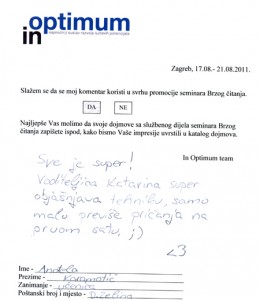 optimum
in
Zagreb, 17.08.- 21.08.2011.
Slažem se da se moj komentar koristi u svrhu promocije seminara Brzog čitanja.
DA NE
Najljepše Vas molimo da svoje dojmove sa službenog dijela seminara Brzog
čitanja zapišete ispod, kako bismo Vaše impresije uvrstili u katalog dojmova.
In Optimum team
Sve je super!
Voditeljica Katarina super
objašnjava tehniku, samo
malu previše pričanja na
prvom satu, ;)
<3
Ime -
Prezime - Karamatić
Zanimanje - učenica
Poštanski broj i mjesto -